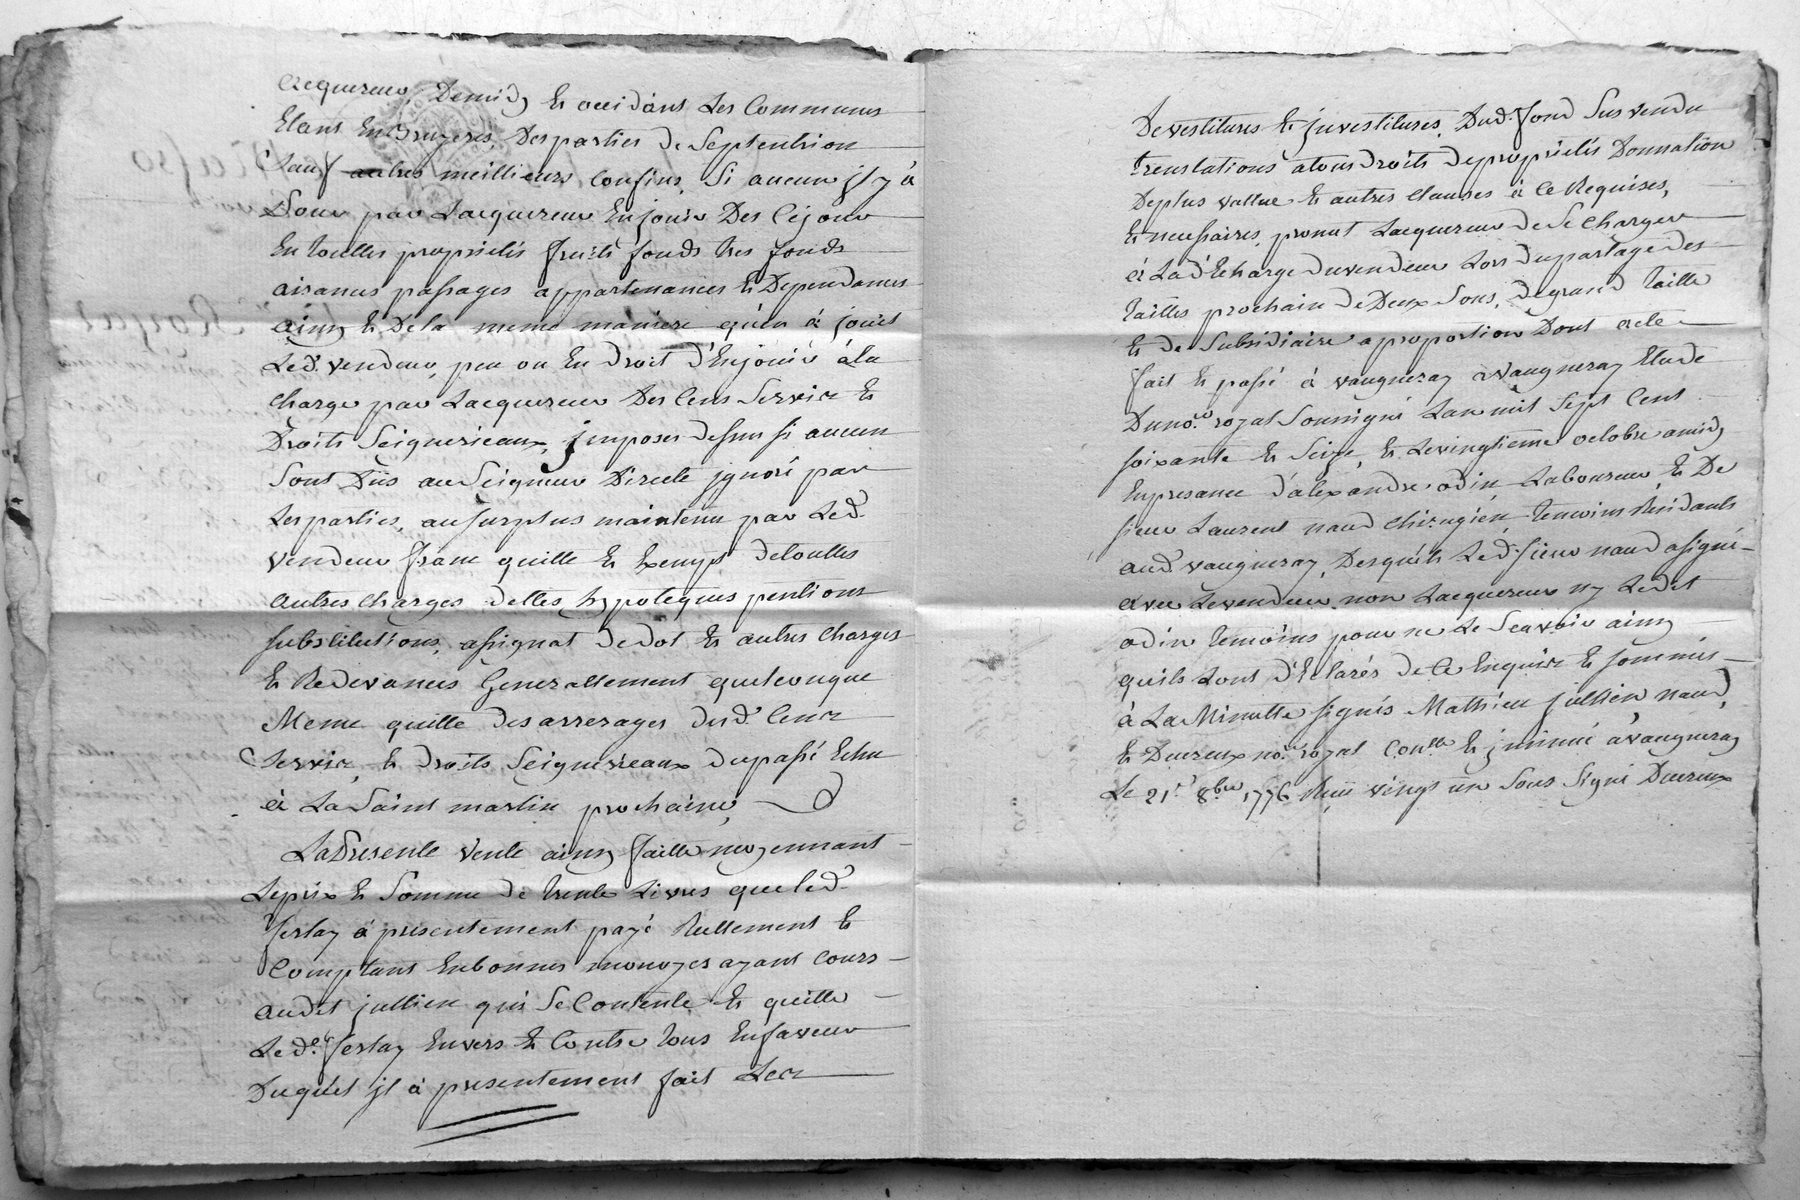 acquereur, Demidy et occidant Les Communes
Etant En Bruyeres, Des parties de Septentrion
Sauf autres meillieurs confins, Si aucun jl y à
Pour par Lacquereur En jouir Des Cejour
En toutes proprietés fruits fonds tres fonds
aisances passages appartenances Et Dependances
ainsy Et De la meme maniere qu'en à jouit
Led. vendeur, peu ou Eu droit d'En jouir à la
charge par Lacquereur Des Cens Servis Et
Droits Seigneuriaux, jmposés dessus si aucun
Sont Dûs au Seigneur Directe jgnoré par
Les parties, au surplus maintenu par Led.
vendeur franc quitte Et Exempt de touttes
autres charges dettes hypoteques pentions
substitutions, assignat de dot Et autres charges
Et Redevances Generallement quelconque
Meme quitte des arrerages dud. Cens
Servis, Et droits Seigneurieaux du passé Echu
à La Saint martin prochaine,
La Presente vente ainsy faitte moyennant
Leprix Et Somme de trente Livres que led.
ferlay à presentement payé Reellement Et
Comptant En bonnes monoyes ayant Cours
audit jullien qui Se Contente Et quitte
Led. ferlay Envers Et Contre tous En faveur
Duquel jl à presentement fait Les
Devestitures Et jnvestitures, Dud. fond Sus vendu
trenslations atous droits de proprietés Donnation
Deplus vallue Et autres clauses à Ce Requises,
Et necessaires, promet Lacquereur de Se Charger
à La d'Echarge du vendeur Lors dupartage des
tailles prochain de Deux Sous, de grand taille
Et de Subsidiaire a proportion Dont acte
fait Et passé à vaugneray Etude
Du no.re royal Soussigné Lan mil Sept Cent
soixante Et Seize, Et Le vingtieme octobre amidy
En presance d'alexandre odin Laboureur, Et De
sieur Laurent naud chirugien temoins Residants
aud. vaugneray, Desquels Led. sieur naud a signé
avec Le vendeur non Lacquereur ny Ledit
odin temoins pour ne Le Scavoir ainsy
quils Lont d'Eclarés de Ce Enquis Et sommés
à La Minutte signés Mathieu jullien naud,
Et Ducreux no.re royal Con.lle Et jnsinué à vaugneray
Le 21.e 8.bre 1776 Reçu vingt un Sous Signé Ducreux